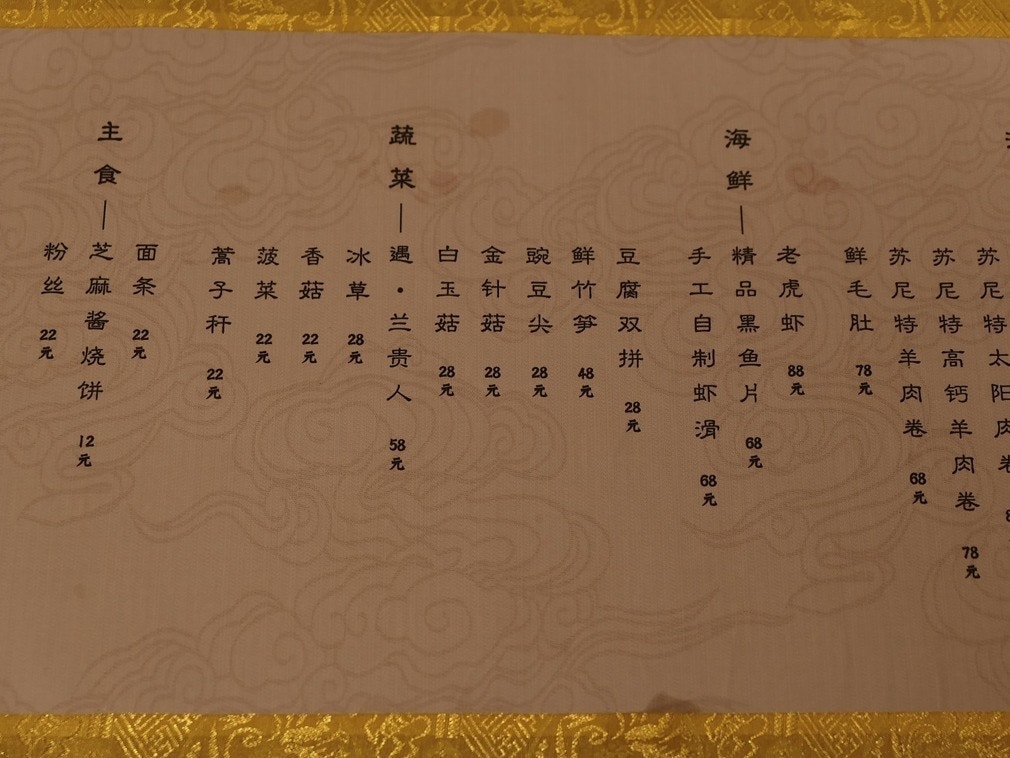 苏尼特高钙羊肉卷 78元
苏尼特羊肉卷 68元
鲜毛肚 78元
海鲜
老虎虾 88元
精品黑鱼片 68元
手工自制虾滑 68元
蔬菜
豆腐双拼 28元
鲜竹笋 48元
豌豆尖 28元
金针菇 28元
白玉菇 28元
遇·兰贵人 58元
冰草 28元
香菇 22元
菠菜 22元
蒿子秆 22元
主食
面条 22元
芝麻酱烧饼 12元
粉丝 22元